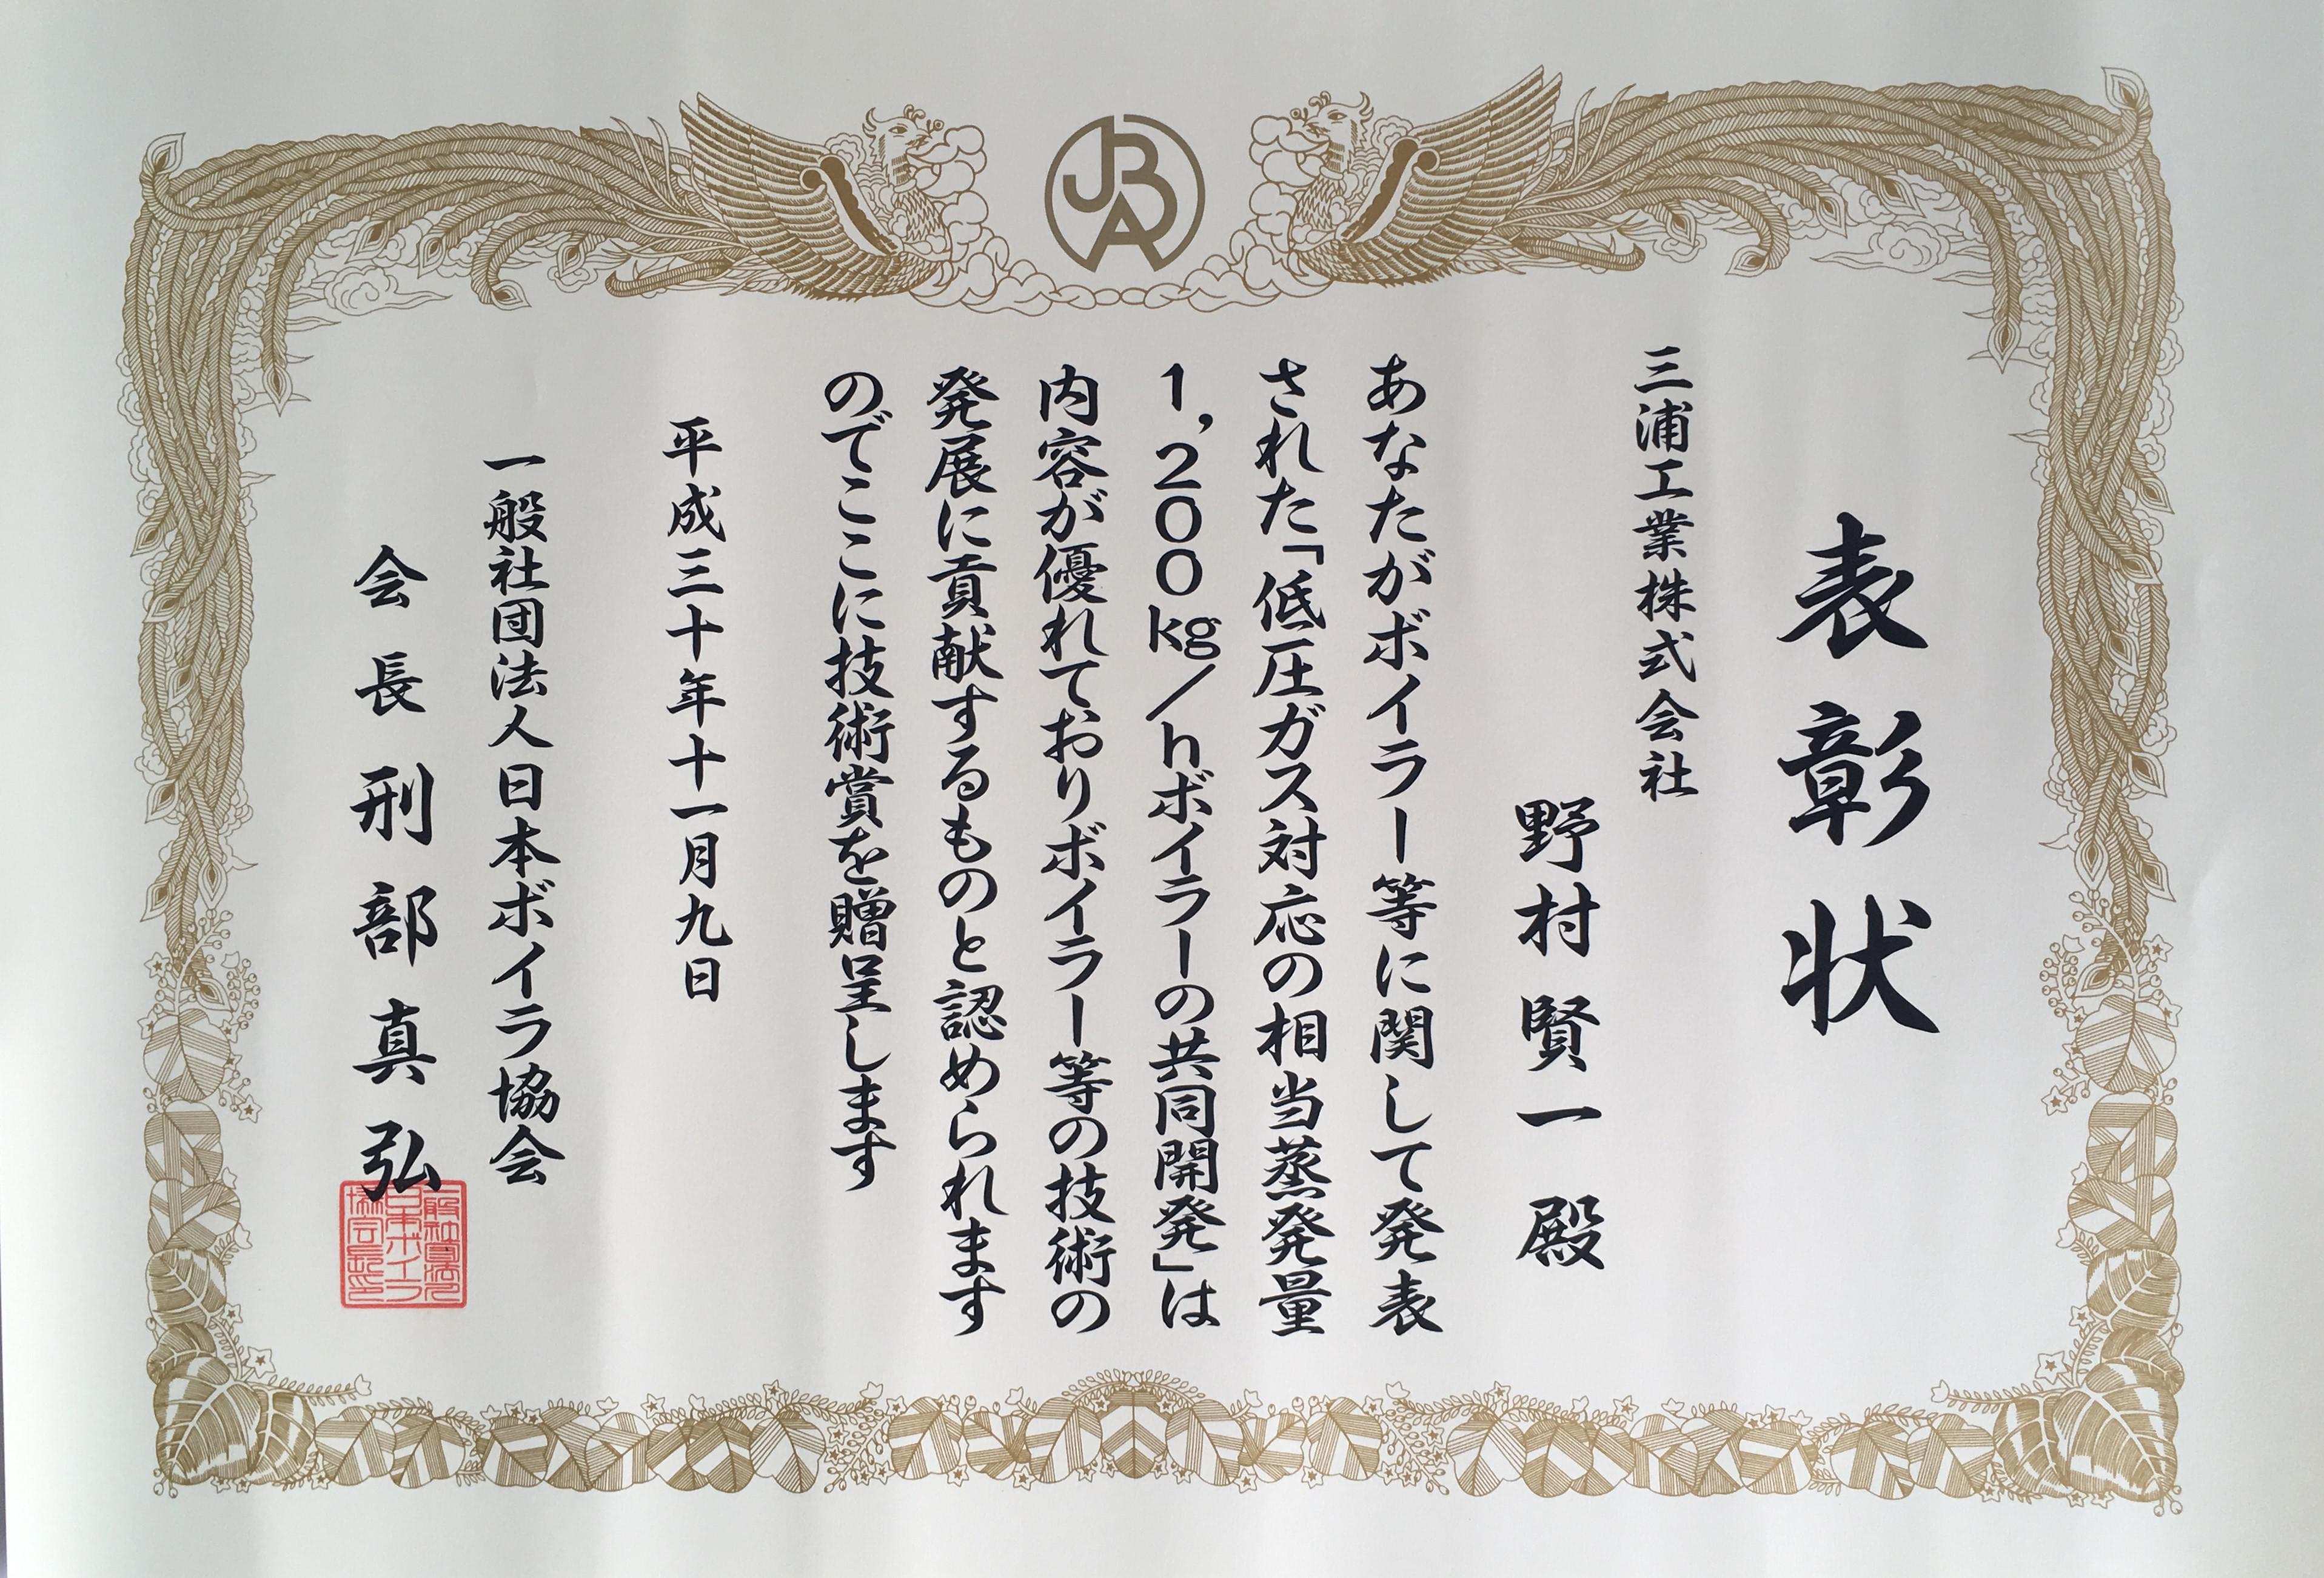 JBA
表彰状
三浦工業株式会社
野村賢一殿
あなたがボイラー等に関して発表
された「低圧ガス対応の相当蒸発量
1,200kg/hボイラーの共同開発」は
内容が優れておりボイラー等の技術の
発展に貢献するものと認められます
のでここに技術賞を贈呈します
平成三十年十一月九日
一般社団法人日本ボイラ協会
会長刑部真弘
一般社団法人
日本ボイラ
協会長印